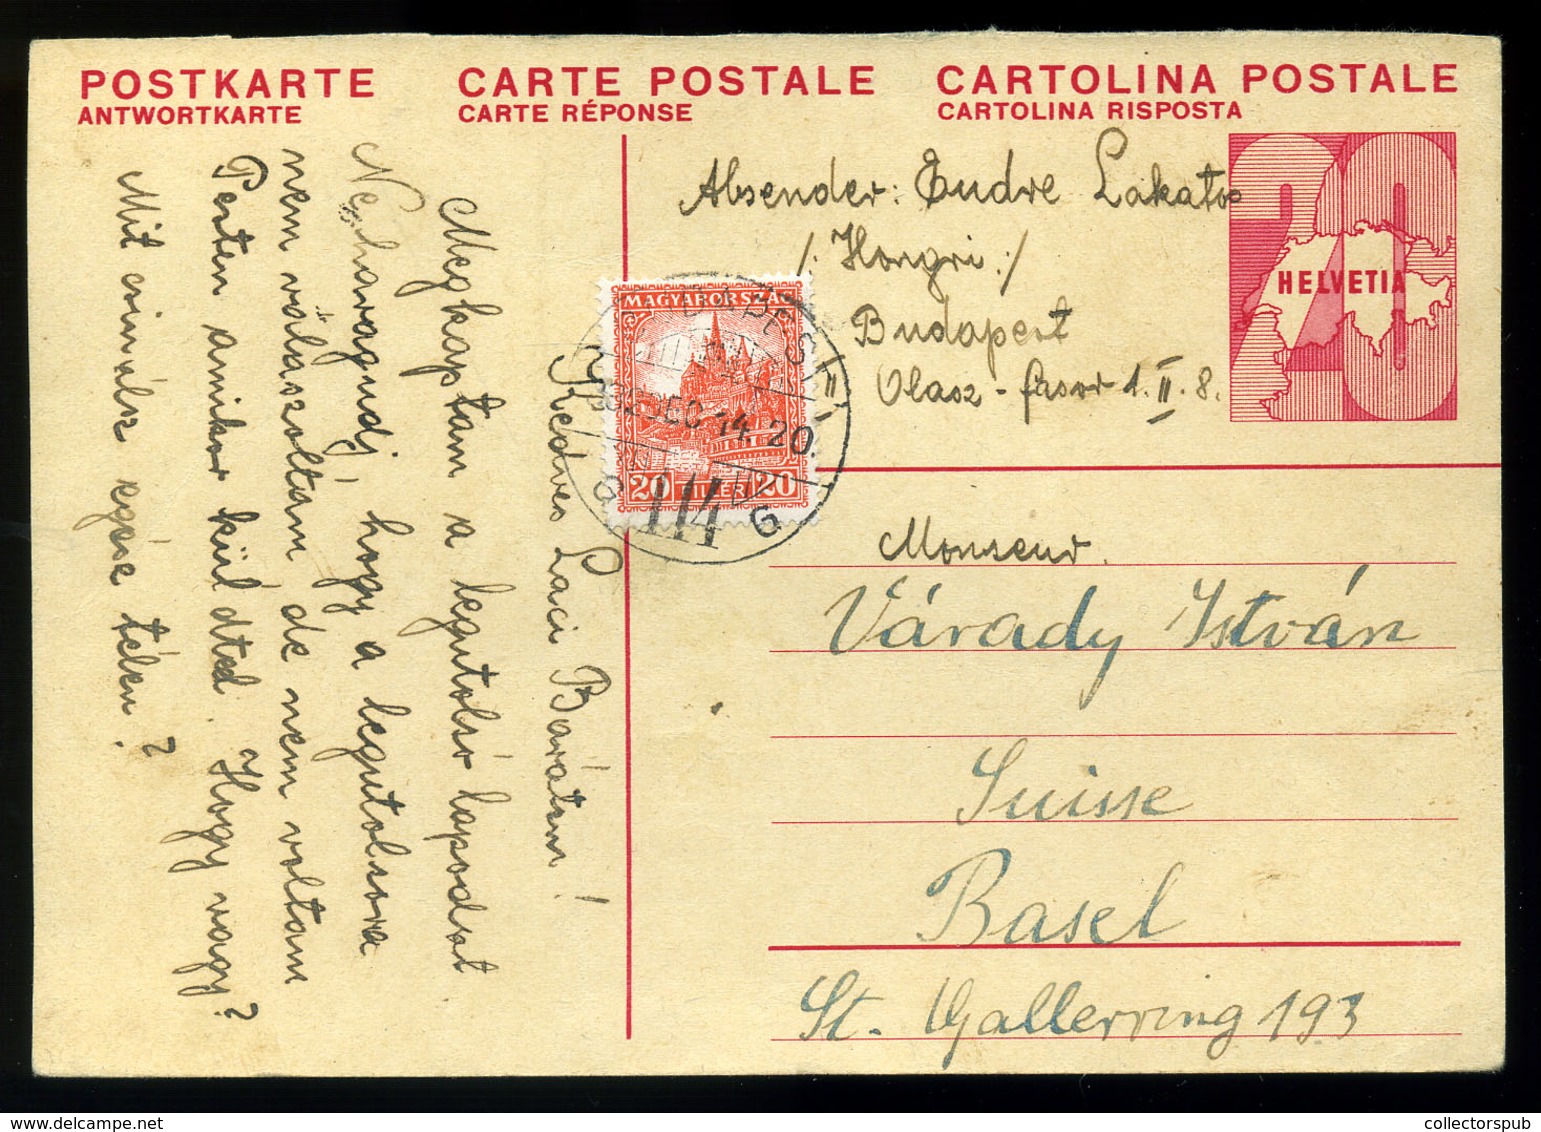 POSTKARTE
ANTWORTKARTE
CARTE POSTALE
CARTE RÉPONSE
CARTOLINA POSTALE
CARTOLINA RISPOSTA
HELVETIA
20
Absender: Endre Lakatos
/: Hongri :/
Budapest
Olasz-fasor 1. II. 8.
MAGYARORSZÁG
20 FILLÉR 20
BUDAPEST
932 DEC 14. 20
114
G G
Monseur.
Várady István
Suisse
Basel
St. Gallerring 193
Kedves Laci Barátom!
Megkaptam a legutolsó lapodat
Ne haragudj, hogy a legutolsora
nem válaszoltam de nem voltam
Pesten amikor kül dted. Hogy vagy?
Mit csinálsz egész télen?
collectorspub
collectorspub.com